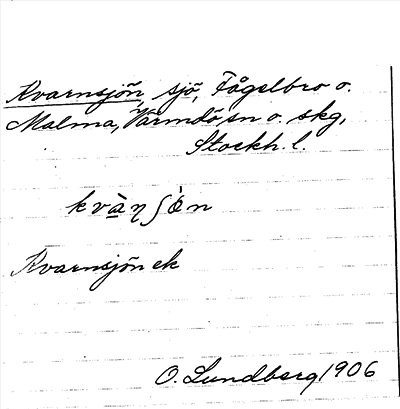 Kvarnsjön, sjö, Fågelbro o.
Malma, Värmdö sn o. skg,
Stockh. l.
kvàηʃǿn
Kvarnsjön ek
O. Lundberg 1906